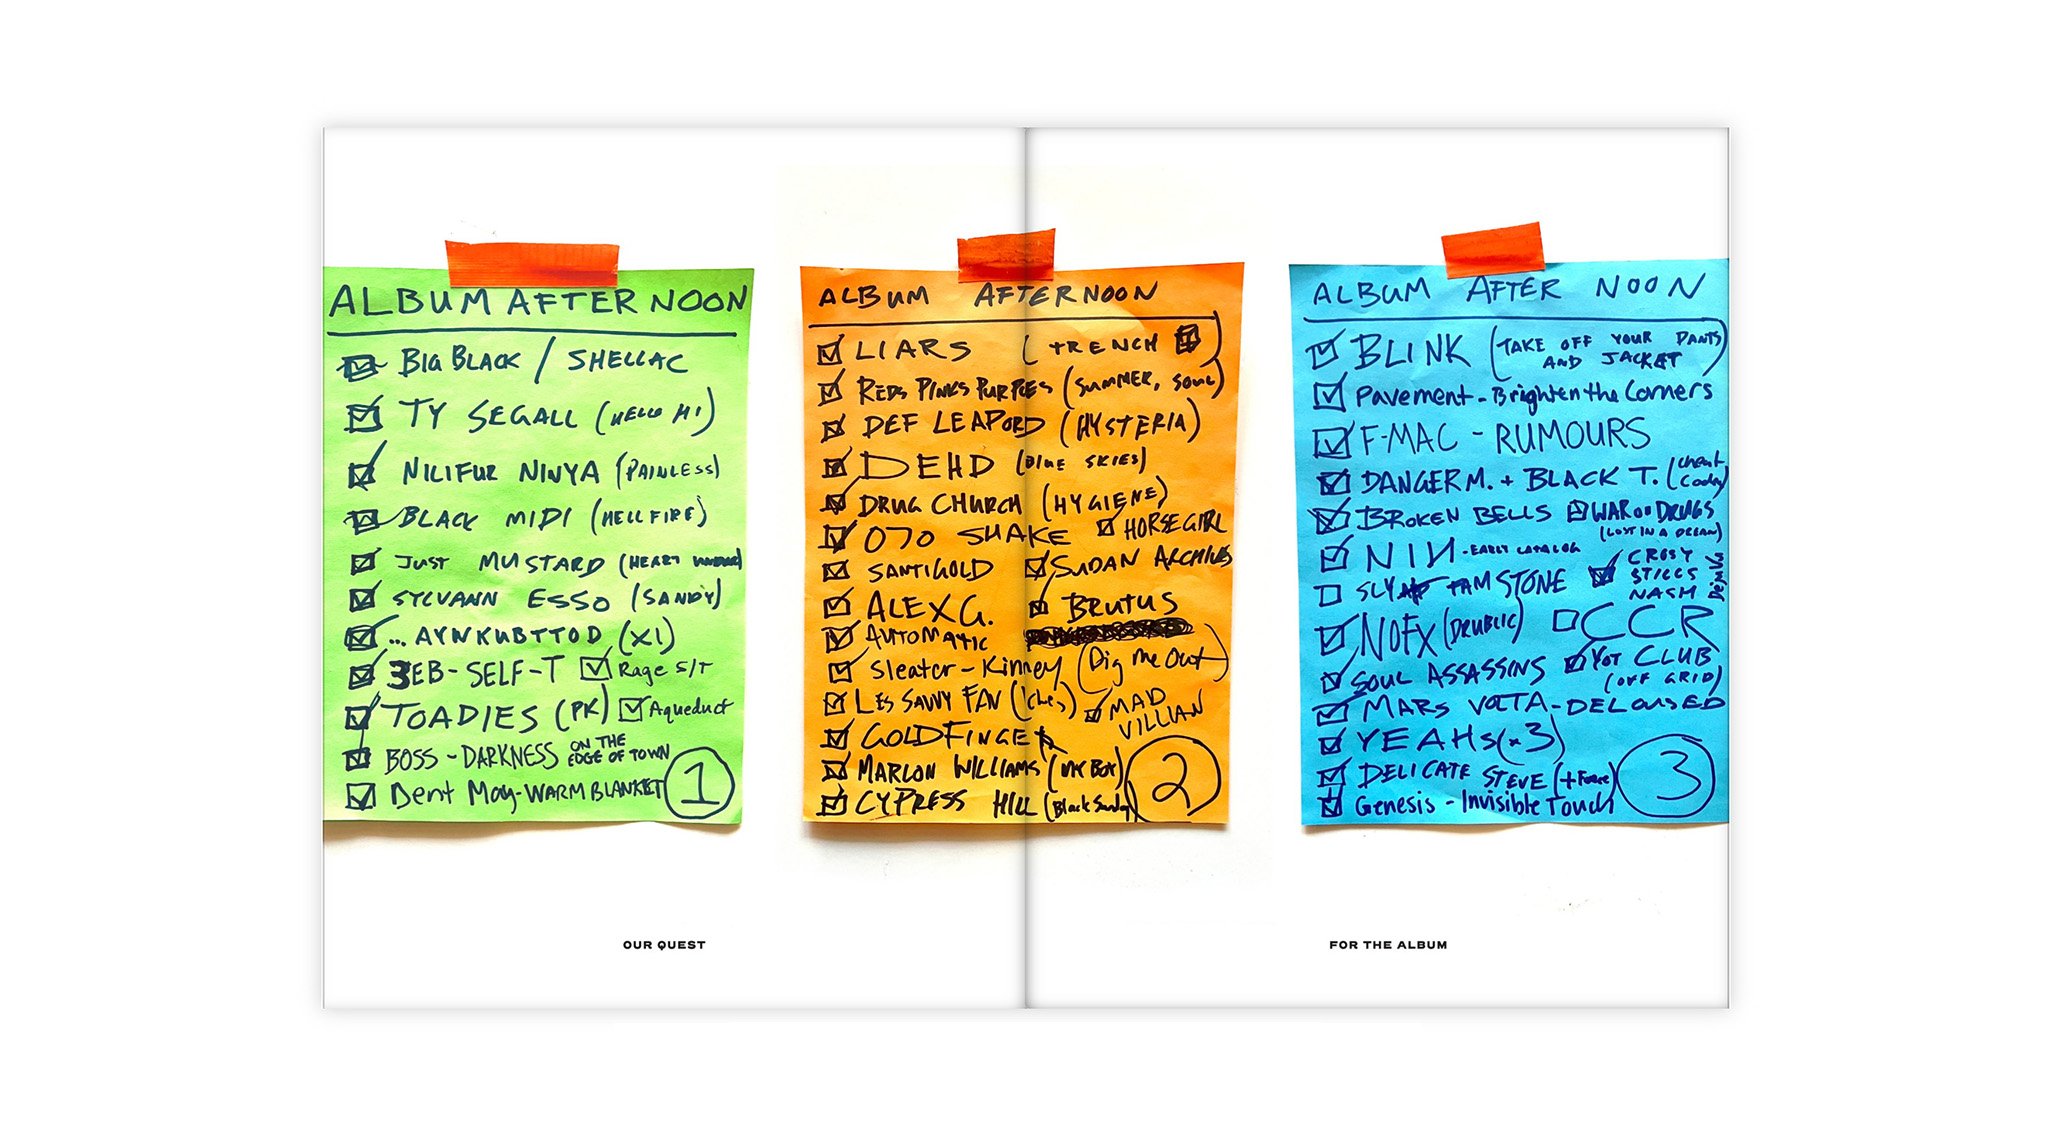 ALBUM AFTER NOON
BIG BLACK / SHELLAC
TY SEGALL (HELLO HI)
NILIFUR NINYA (PAINLESS)
BLACK MIDI (HELLFIRE)
JUST MUSTARD (HEART UNDER)
SYLVANN ESSO (SANDY)
... AYNKUBTTOD (XI)
3EB-SELF-T Rage S/T
TOADIES (PK) Aqueduct
BOSS - DARKNESS ON THE EDGE OF TOWN
Dent May - WARM BLANKET
1
ALBUM AFTERNOON
LIARS (TRENCH
REDS PINKS PURPLES (SUMMER, SOUL)
DEF LEAPORD (HYSTERIA)
DEHD (BLUE SKIES)
DRUG CHURCH (HYGIENE)
070 SHAKE HORSEGIRL
SANTIGOLD SUDAN ARCHIVES
ALEX G. BRUTUS
AUTOMATIC
Sleater-Kinney (Dig Me Out)
LES SAVVY FAV (Inches) MAD VILLIAN
GOLDFINGER
MARLON WILLIAMS (MY BOY)
CYPRESS HILL (Black Sunday)
2
ALBUM AFTER NOON
BLINK (TAKE OFF YOUR PANTS AND JACKET)
Pavement - Brighten the Corners
F-MAC - RUMOURS
DANGER M. + BLACK T. (Cheat Codes)
BROKEN BELLS WAR on DRUGS (LOST IN A DREAM)
NIN - EARLY CATALOG
SLY FAM STONE CROSBY STILLS NASH
NOFX (DRUBLIC) CCR
SOUL ASSASSINS YOT CLUB (OFF GRID)
MARS VOLTA - DELOUSED
YEAHS (x3)
DELICATE STEVE
Genesis - Invisible Touch
3
OUR QUEST
FOR THE ALBUM